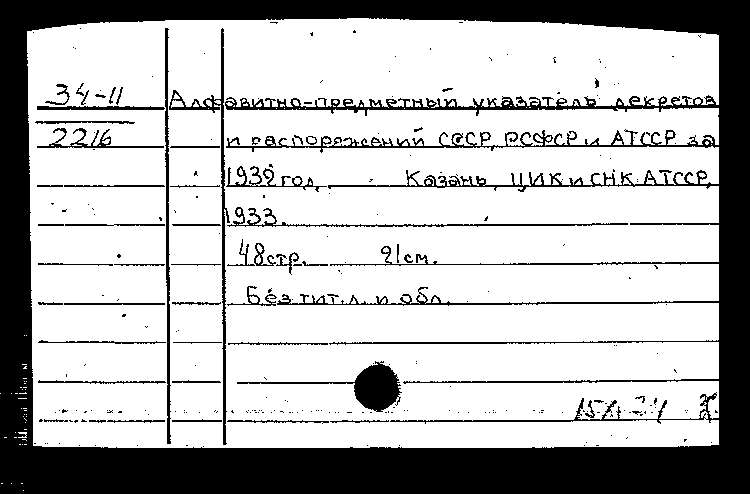 34-11 Алфавитно-предметный указатель декретов
2216 и распоряжений СССР, РСФСР и АТССР за
1932 год. Казань, ЦИК и СНК АТССР,
1933.
48 стр. 21 см.
Без тит. л. и обл.